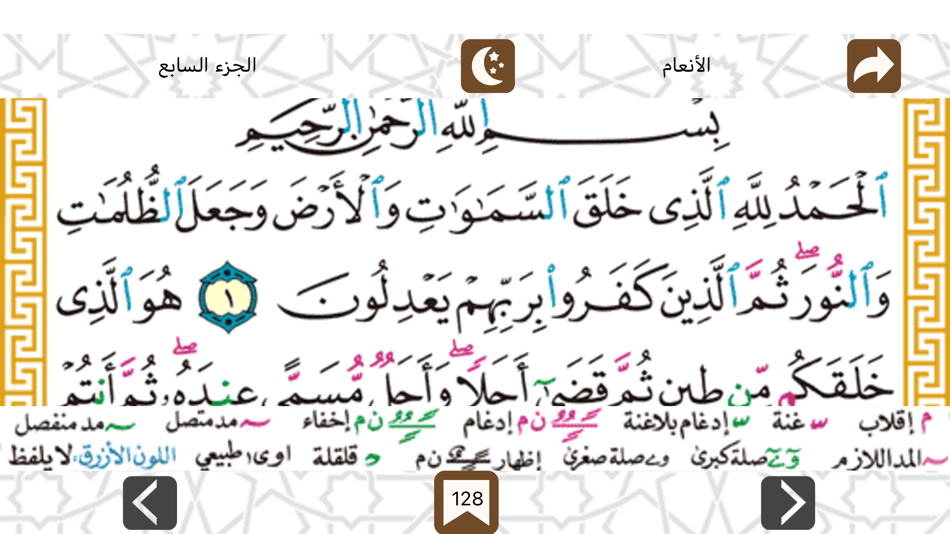 الجزء السابع
الأنعام
بِسْمِ ٱللَّهِ ٱلرَّحْمَٰنِ ٱلرَّحِيمِ
ٱلْحَمْدُ لِلَّهِ ٱلَّذِى خَلَقَ ٱلسَّمَٰوَٰتِ وَٱلْأَرْضَ وَجَعَلَ ٱلظُّلُمَٰتِ
وَٱلنُّورَ ۖ ثُمَّ ٱلَّذِينَ كَفَرُوا۟ بِرَبِّهِمْ يَعْدِلُونَ ١ هُوَ ٱلَّذِى
خَلَقَكُم مِّن طِينٍ ثُمَّ قَضَىٰٓ أَجَلًا ۖ وَأَجَلٌ مُّسَمًّى عِندَهُۥ ۖ ثُمَّ أَنتُمْ
م إقلاب غنة إدغام بلاغنة ن م إدغام ن م إخفاء مد متصل مد منفصل
المد اللازم وے صلة كبرى وے صلة صغرى إظهار ن م د قلقلة اوى طبيعي اللون الأزرق: لا يلفظ
128